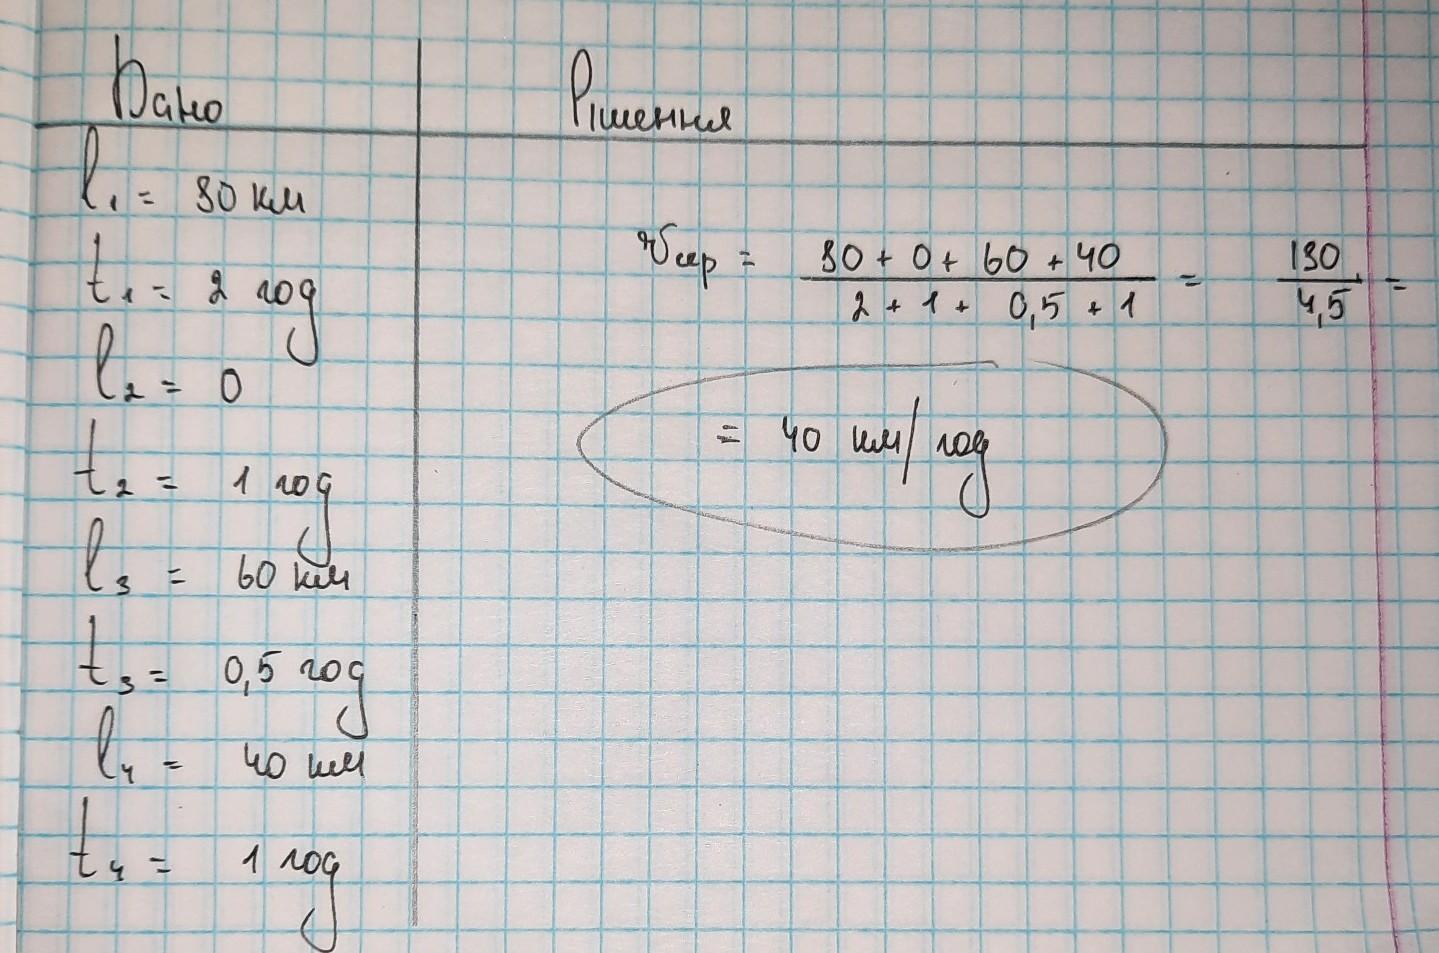 Дано
Рішення
l₁ = 80 км
t₁ = 2 год
l₂ = 0
t₂ = 1 год
l₃ = 60 км
t₃ = 0,5 год
l₄ = 40 км
t₄ = 1 год
vсер = (80 + 0 + 60 + 40) / (2 + 1 + 0,5 + 1) = 180 / 4,5 =
= 40 км/год